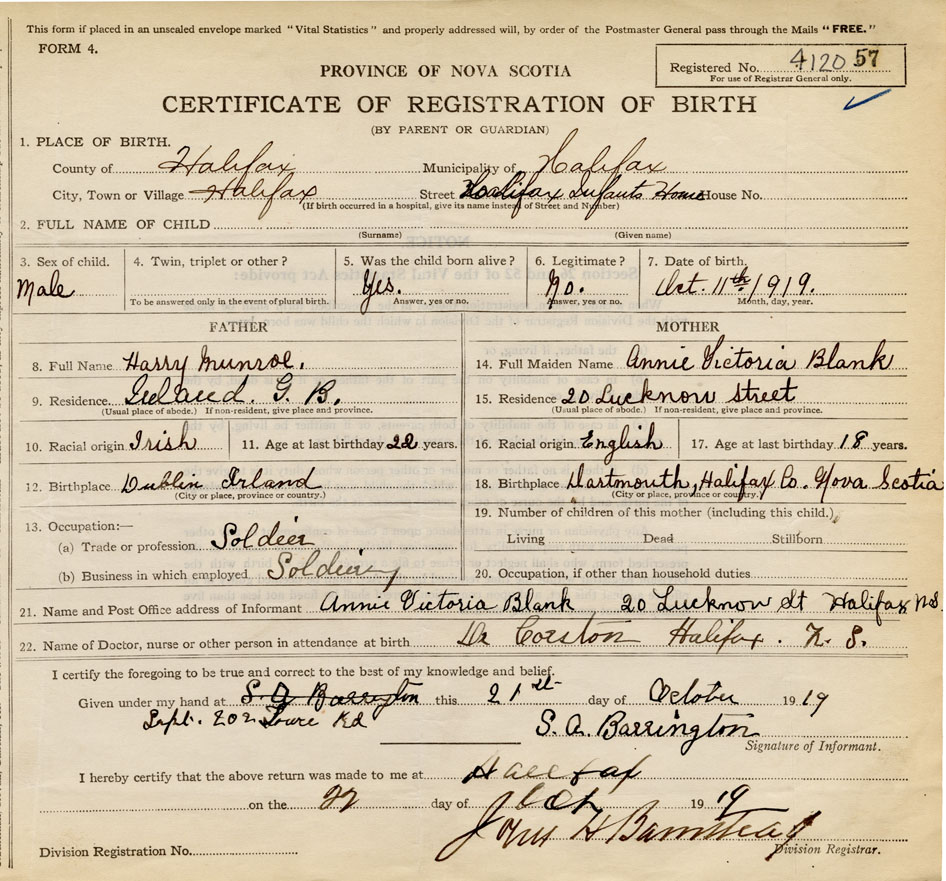 This form if placed in an unsealed envelope marked "Vital Statistics" and properly addressed will, by order of the Postmaster General pass through the Mails "FREE."
FORM 4.
Registered No. 4120 57
For use of Registrar General only.
PROVINCE OF NOVA SCOTIA
CERTIFICATE OF REGISTRATION OF BIRTH
(BY PARENT OR GUARDIAN)
1. PLACE OF BIRTH.
County of Halifax Municipality of Halifax
City, Town or Village Halifax Street Halifax Infants Home House No.
(If birth occurred in a hospital, give its name instead of Street and Number)
2. FULL NAME OF CHILD
(Surname) (Given name)
3. Sex of child. 4. Twin, triplet or other? 5. Was the child born alive? 6. Legitimate? 7. Date of birth.
Male Yes. No. Oct. 11th 1919.
To be answered only in the event of plural birth. Answer, yes or no. Answer, yes or no. Month, day, year.
FATHER MOTHER
8. Full Name Harry Munroe. 14. Full Maiden Name Annie Victoria Blank
9. Residence G. B. 15. Residence 20 Lucknow Street
(Usual place of abode.) If non-resident, give place and province. (Usual place of abode.) If non-resident, give place and province.
10. Racial origin Irish 11. Age at last birthday 22 years. 16. Racial origin English 17. Age at last birthday 18 years.
12. Birthplace Dublin Irland 18. Birthplace Dartmouth, Halifax Co. Nova Scotia
(City or place, province or country.) (City or place, province or country.)
13. Occupation:— 19. Number of children of this mother (including this child.)
(a) Trade or profession Soldier Living Dead Stillborn
(b) Business in which employed 20. Occupation, if other than household duties
21. Name and Post Office address of Informant Annie Victoria Blank 20 Lucknow St Halifax N.S.
22. Name of Doctor, nurse or other person in attendance at birth Dr Corston Halifax. N. S.
I certify the foregoing to be true and correct to the best of my knowledge and belief.
Given under my hand at S. A Barrington this 21st day of October 1919
Supt. 202 Rd S. A. Barrington
Signature of Informant.
I hereby certify that the above return was made to me at Halifax
on the 22 day of Oct 1919
John H Barnstead
Division Registration No. Division Registrar.